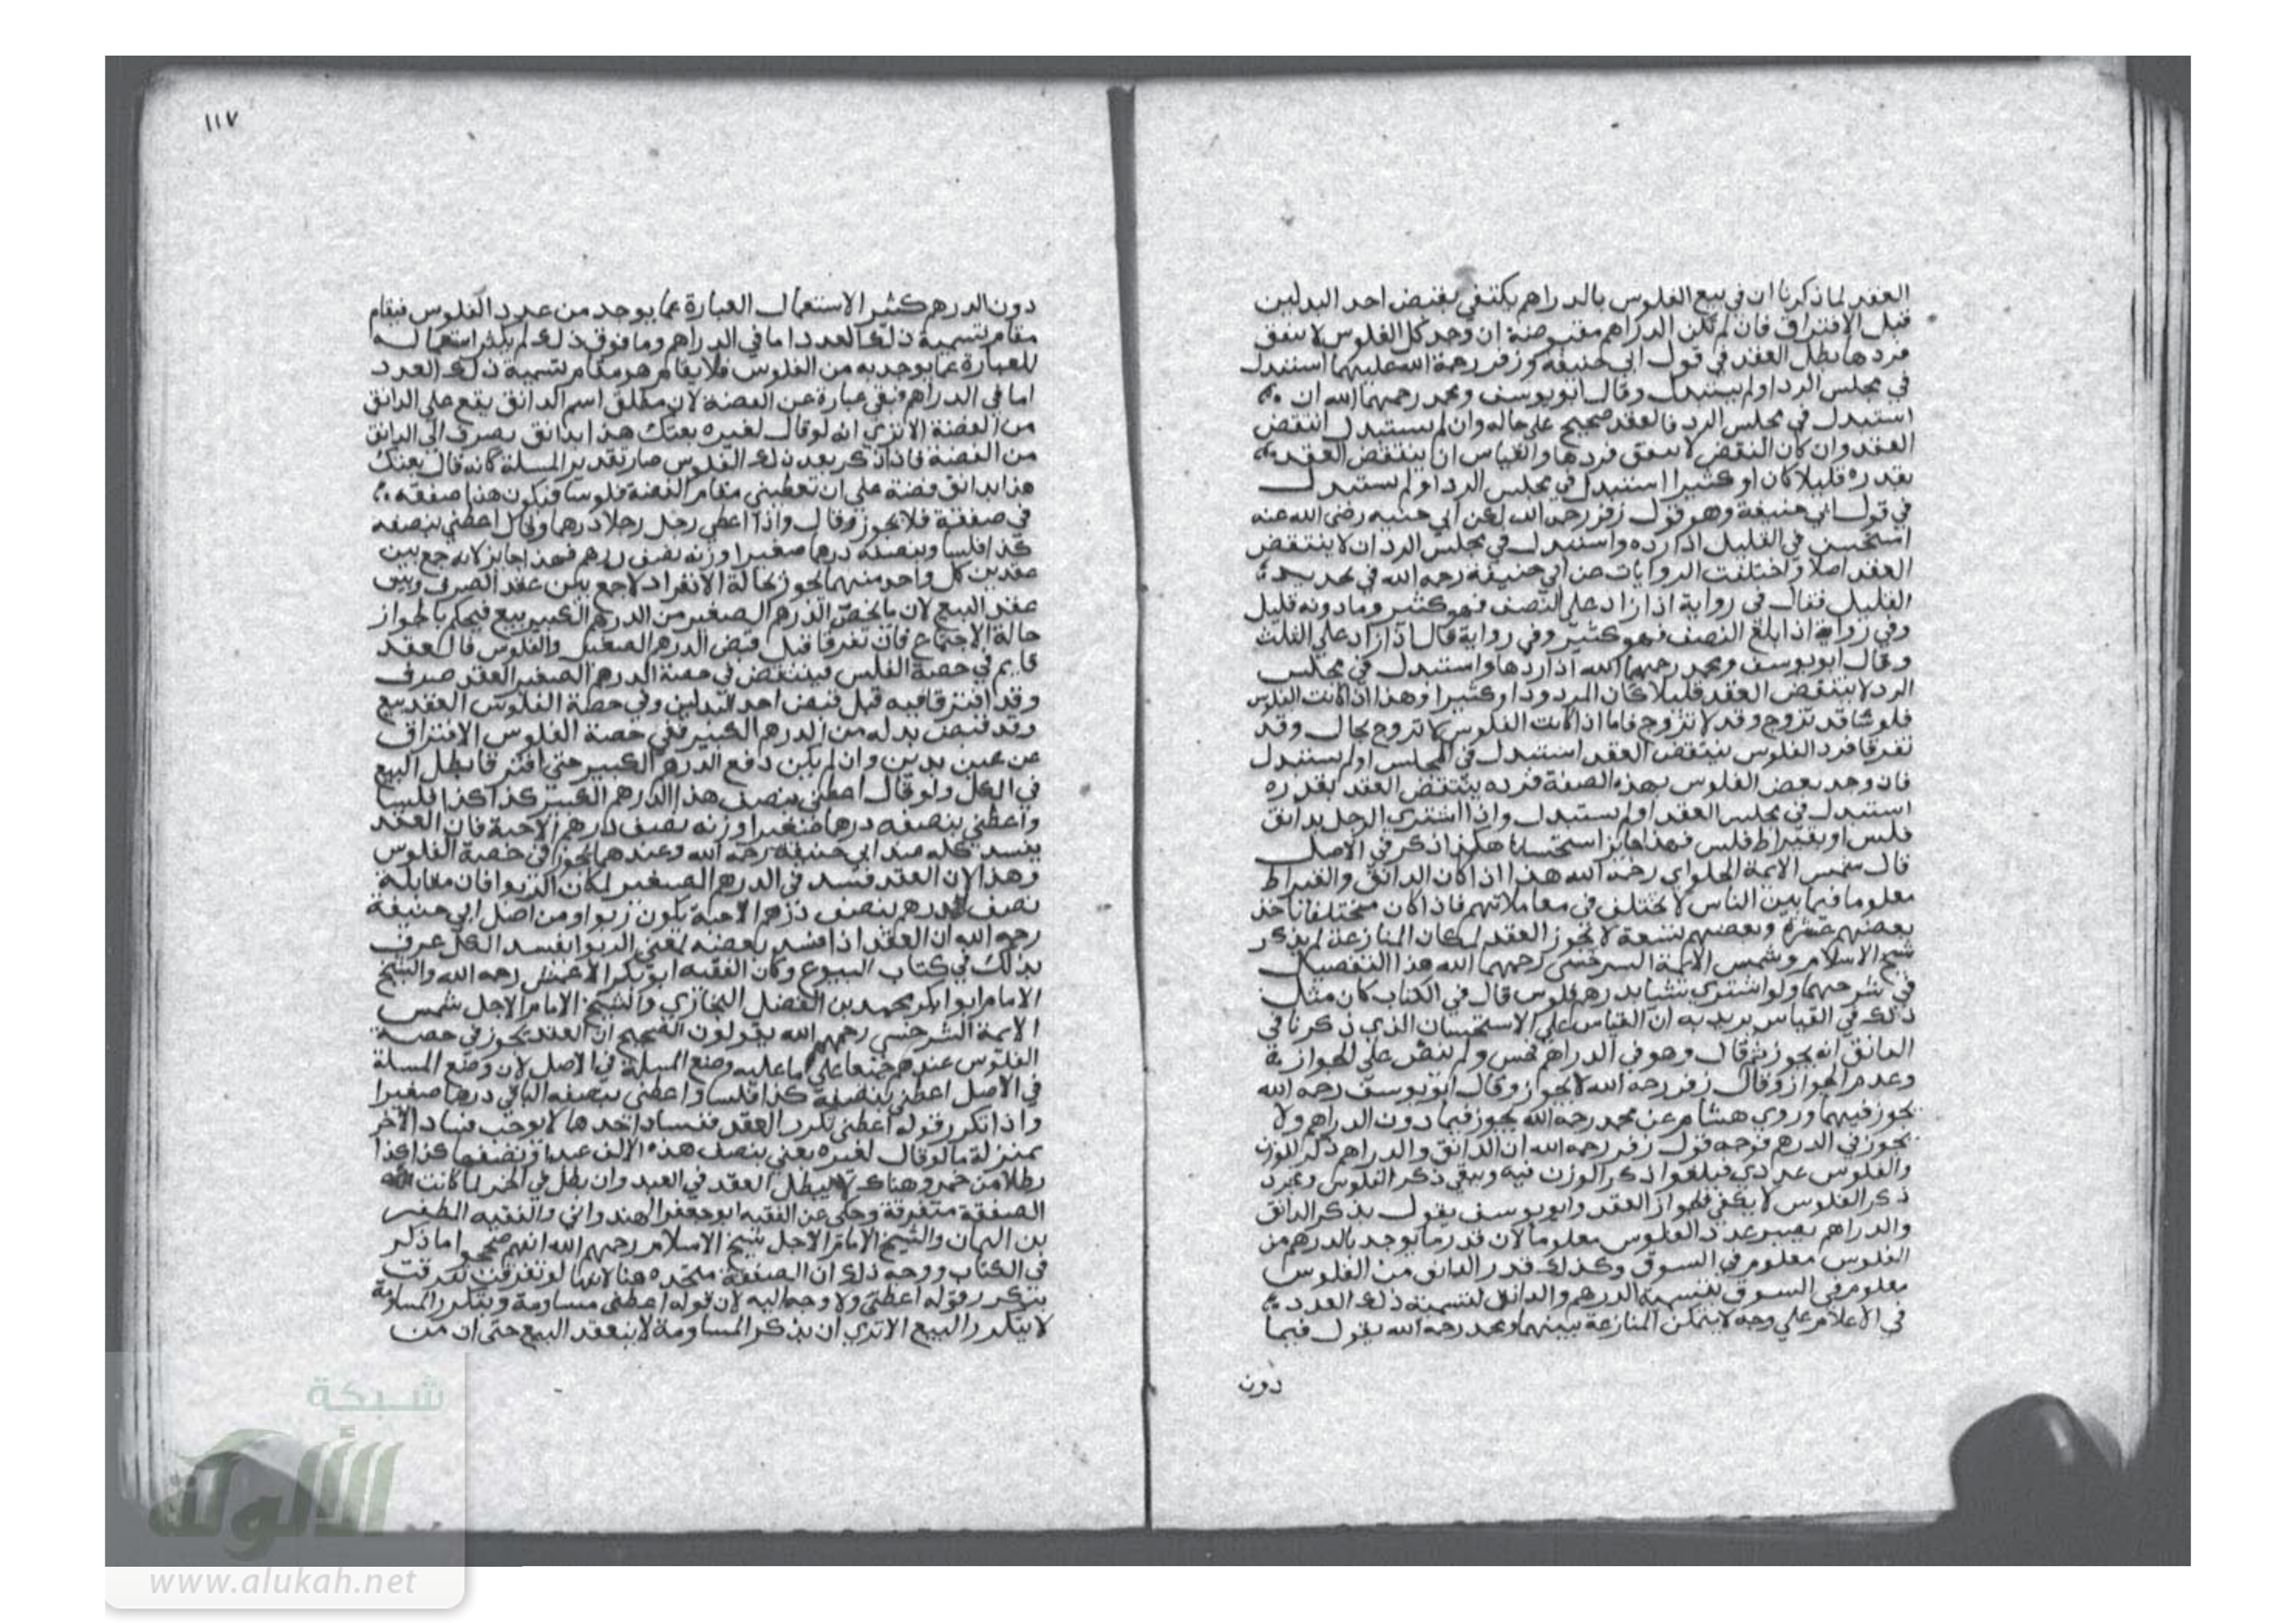 العقد لما ذكرنا ان في بيع الفلوس بالدراهم يكتفي بقبض احد البدلين
قبل الافتراق فان لم تكن الدراهم مقبوضة ان وجد كل الفلوس لا ينفق
فردها بطل العقد في قول ابي حنيفة وزفر رحمة الله عليهما استبدل
في مجلس الرد اولم يستبدل وقال ابويوسف ومحمد رحمهما الله ان
استبدل في مجلس الرد فالعقد صحيح على حاله وان لم يستبدل انتقض
العقد وان كان البعض لا ينفق فردها والقياس ان ينتقض العقد
بقدره قليلا كان او كثيرا استبدل في مجلس الرد او لم يستبدل
في قول ابي حنيفة وهو قول زفر رحمه الله لكن ابي حنيفه رضى الله عنه
استحسن في القليل اذا رده واستبدل في مجلس الرد ان لا ينتقض
العقد اصلا واختلفت الروايات عن ابي حنيفة رحمه الله في تحديد
القليل فقال في رواية اذا زاد على النصف فهو كثير ومادونه قليل
وفي رواية اذا بلغ النصف فهو كثير وفي رواية قال اذا زاد علي الثلث
وقال ابويوسف ومحمد رحمهما الله اذا ردها واستبدل في مجلس
الرد لا ينتقض العقد قليلا كان المردود او كثيرا وهذا اذا كانت الفلوس
فلوسا قد تروج وقد لا تروج فاما اذا كانت الفلوس لا تروج بحال وقد
تفرقا فرد الفلوس ينتقض العقد استبدل في المجلس او لم يستبدل
فان وجد بعض الفلوس بهذه الصفة فرده ينتقض العقد بقدره
استبدل في مجلس العقد او لم يستبدل واذا اشترى الرجل بدانق
فلس او بقيراط فلس فهذا جايز استحسانا هكذا ذكر في الاصل
قال شمس الايمة الحلواي رحمه الله هذا اذا كان الدانق والقيراط
معلوما فيما بين الناس لا يختلف في معاملاتهم فاذا كان مختلفا ياخذ
بعضهم عشرة وبعضهم بتسعة لا يجوز العقد لمكان المنازعة لم يذكر
شيخ الاسلام وشمس الايمة السرخسي رحمهما الله هذا التفصيل
في شرحهما ولو اشترى شيا بدرهم فلوس قال في الكتاب كان مثل
ذلك في القياس يريد به ان القياس علي الاستحسان الذي ذكرنا في
الدانق انه يجوز ثم قال وهو في الدراهم فحس ولم ينص على الجواز
وعدم الجواز وقال زفر رحمه الله لا يجوز وقال ابويوسف رحمه الله
يجوز فيهما وروي هشام عن محمد رحمه الله يجوز فيما دون الدراهم ولا
يجوز في الدرهم فوجه قول زفر رحمه الله ان الدانق والدراهم ذكر للوزن
والفلوس عددي فيلغوا ذكر الوزن فيه ويبقي ذكر الفلوس ومجرد
ذكر الفلوس لا يكفي لجواز العقد وابويوسف يقول بذكر الدانق
والدراهم يصير عدد الفلوس معلوما لان قدر ما يوجد بالدرهم من
الفلوس معلوم في السوق وكذلك قدر الدانق من الفلوس
معلوم في السوق فتسمية الدرهم والدانق كتسمية ذلك العدد
في الاعلام علي وجه لا يتمكن المنازعة بينهما ومحمد رحمه الله يقول فيما
دون
١١٧
دون الدرهم كثر الاستعمال العبارة عما يوجد من عدد الفلوس فيقام
مقام تسمية ذلك العدد اما في الدراهم وما فوق ذلك لم يكثر استعماله
للعبارة عما يوجد به من الفلوس فلا يقام هو مقام تسمية ذلك العدد
اما في الدراهم فبقي عبارة عن الفضة لان مطلق اسم الدانق يقع علي الدانق
من الفضة الا تري انه لو قال لغيره بعتك هذا بدانق يصرف الي الدانق
من الفضة فاذا ذكر بعد ذلك الفلوس صار تقدير المسلة كانه قال بعتك
هذا بدانق فضة علي ان تعطيني مقام الفضة فلوسا فتكون هذا صفقة
في صفقة فلا يجوز وقال واذا اعطي رجل رجلا درهما وقال اعطني بنصفه
كذا فلسا وبنصفه درهما صغيرا وزنه نصف درهم فهذا جايز لانه جمع بين
عقدين كل واحد منهما يجوز بحالة الانفراد لا جمع بين عقد الصرف وبين
عقد البيع لان ما يخص الدرهم الصغير من الدرهم الكبير بيع فيحكم بالجواز
حالة الاجتماع فان تفرقا قبل قبض الدرهم الصغير والفلوس فالعقد
قايم في حصة الفلس فينتقض في حصة الدرهم الصغير العقد صرف
وقد افترقا فيه قبل قبض احد البدلين وفي حصة الفلوس العقد بيع
وقد قبض بدله من الدرهم الكبير ففي حصة الفلوس الافتراق
عن عين بدين وان لم يكن دفع الدرهم الكبير حتى افترقا بطل البيع
في الكل ولو قال اعطني بنصف هذا الدرهم الكبير كذا كذا فلسا
واعطني بنصفه درهما صغيرا وزنه نصف درهم الا حبة فان العقد
يفسد كله عند ابي حنيفة رحمه الله وعندهما يجوز في حصة الفلوس
وهذا لان العقد فسد في الدرهم الصغير لمكان الربوا فان مقابلة
نصف درهم بنصف درهم الا حبة يكون ربوا ومن اصل ابي حنيفة
رحمه الله ان العقد اذا فسد بعضه لمعني الربوا يفسد الكل عرف
بذلك في كتاب البيوع وكان الفقيه ابو بكر الاعمش رحمه الله والشيخ
الامام ابوا بكر محمد بن الفضل البخاري والشيخ الامام الاجل شمس
الايمة السرخسي رحمهم الله يقولون الصحيح ان العقد يجوز في حصة
الفلوس عندهم جميعا علي ما عليه وضع المسلة في الاصل لان وضع المسلة
في الاصل اعطني بنصفه كذا فلسا واعطني بنصفه الباقي درهما صغيرا
واذا تكرر قوله اعطني تكرر العقد ففساد احدها لا يوجب فساد الاخر
بمنزلة ما لو قال لغيره بعني بنصف هذه الالف عبدا وبنصفها كذا كذا
رطلا من خمر وهناك لا يبطل العقد في العبد وان بطل في الخمر لما كانت
الصفقة متفرقة وحكى عن الفقيه ابو جعفر الهندواني والفقيه المظفر
بن اليمان والشيخ الامام الاجل شيخ الاسلام رحمهم الله انهم صححوا ما ذكر
في الكتاب ووجه ذلك ان الصفقة متحده هنا لانها لو تفرقت تفرقت
بتكرر قوله اعطني ولا وجه اليه لان قوله اعطني مساومة وبتكرر المساومة
لا يتكرر البيع الا تري ان بذكر المساومة لا ينعقد البيع حتى ان من
شبكة
الألوكة
www.alukah.net